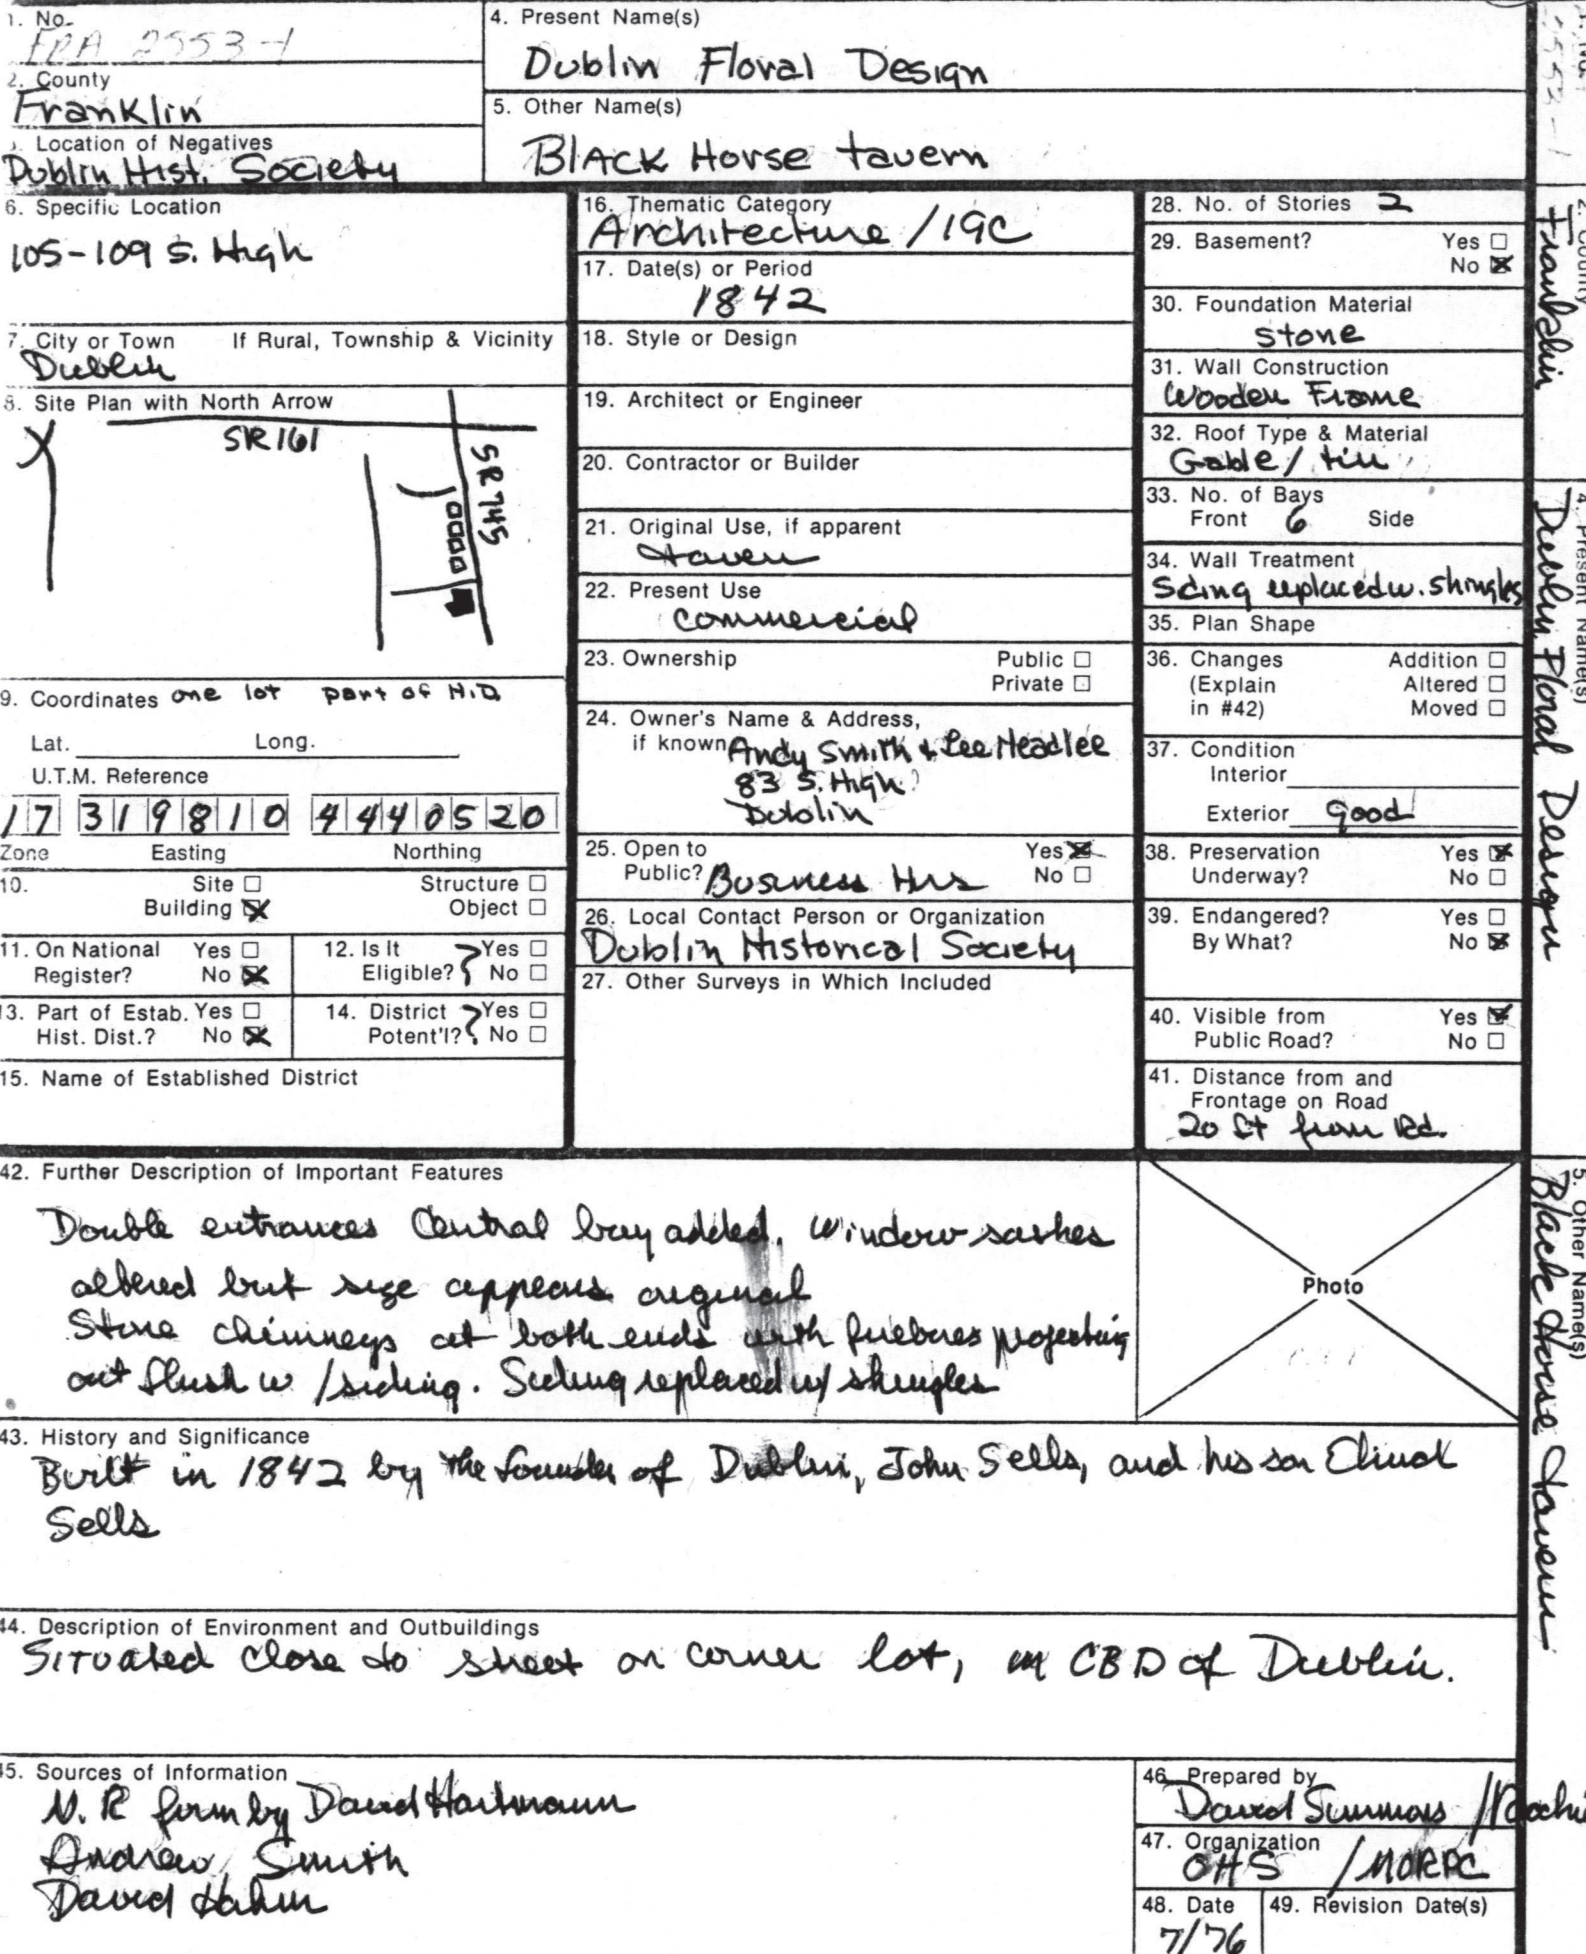 1. No.
FRA 2553-1
2. County
Franklin
3. Location of Negatives
Dublin Hist. Society
4. Present Name(s)
Dublin Floral Design
5. Other Name(s)
Black Horse tavern
6. Specific Location
105-109 S. High
7. City or Town If Rural, Township & Vicinity
Dublin
8. Site Plan with North Arrow
SR161
SR745
9. Coordinates one lot part of H.D.
Lat. Long.
U.T.M. Reference
17 319810 4440520
Zone Easting Northing
10. Site ☐ Structure ☐
Building ☒ Object ☐
11. On National Yes ☐
Register? No ☒
12. Is It ? Yes ☐
Eligible? No ☐
13. Part of Estab. Yes ☐
Hist. Dist.? No ☒
14. District ? Yes ☐
Potent'l? No ☐
15. Name of Established District
16. Thematic Category
Architecture /19C
17. Date(s) or Period
1842
18. Style or Design
19. Architect or Engineer
20. Contractor or Builder
21. Original Use, if apparent
taven
22. Present Use
commercial
23. Ownership Public ☐
Private ☐
24. Owner's Name & Address,
if known Andy Smith & Lee Headlee
83 S. High
Dublin
25. Open to Yes ☒
Public? Business Hrs No ☐
26. Local Contact Person or Organization
Dublin Historical Society
27. Other Surveys in Which Included
28. No. of Stories 2
29. Basement? Yes ☐
No ☒
30. Foundation Material
stone
31. Wall Construction
Wooden Frame
32. Roof Type & Material
Gable / tin
33. No. of Bays
Front 6 Side
34. Wall Treatment
Siding replaced w. shingles
35. Plan Shape
36. Changes Addition ☐
(Explain Altered ☐
in #42) Moved ☐
37. Condition
Interior
Exterior good
38. Preservation Yes ☒
Underway? No ☐
39. Endangered? Yes ☐
By What? No ☒
40. Visible from Yes ☒
Public Road? No ☐
41. Distance from and
Frontage on Road
20 ft from Rd.
42. Further Description of Important Features
Double entrances Central bay added. Window sashes
altered but size appears original
Stone chimneys at both ends with fireboxes projecting
out flush w/siding. Siding replaced w/ shingles
Photo
43. History and Significance
Built in 1842 by the founder of Dublin, John Sells, and his son Eliud
Sells
44. Description of Environment and Outbuildings
Situated close to street on corner lot, in CBD of Dublin.
45. Sources of Information
N. R form by David Hartmann
Andrew Smith
David Hahm
46. Prepared by
David Simmons /
47. Organization
OHS / MORPC
48. Date
7/76
49. Revision Date(s)
1. No.
2553-1
2. County
Franklin
4. Present Name(s)
Dublin Floral Design
5. Other Name(s)
Black Horse Tavern